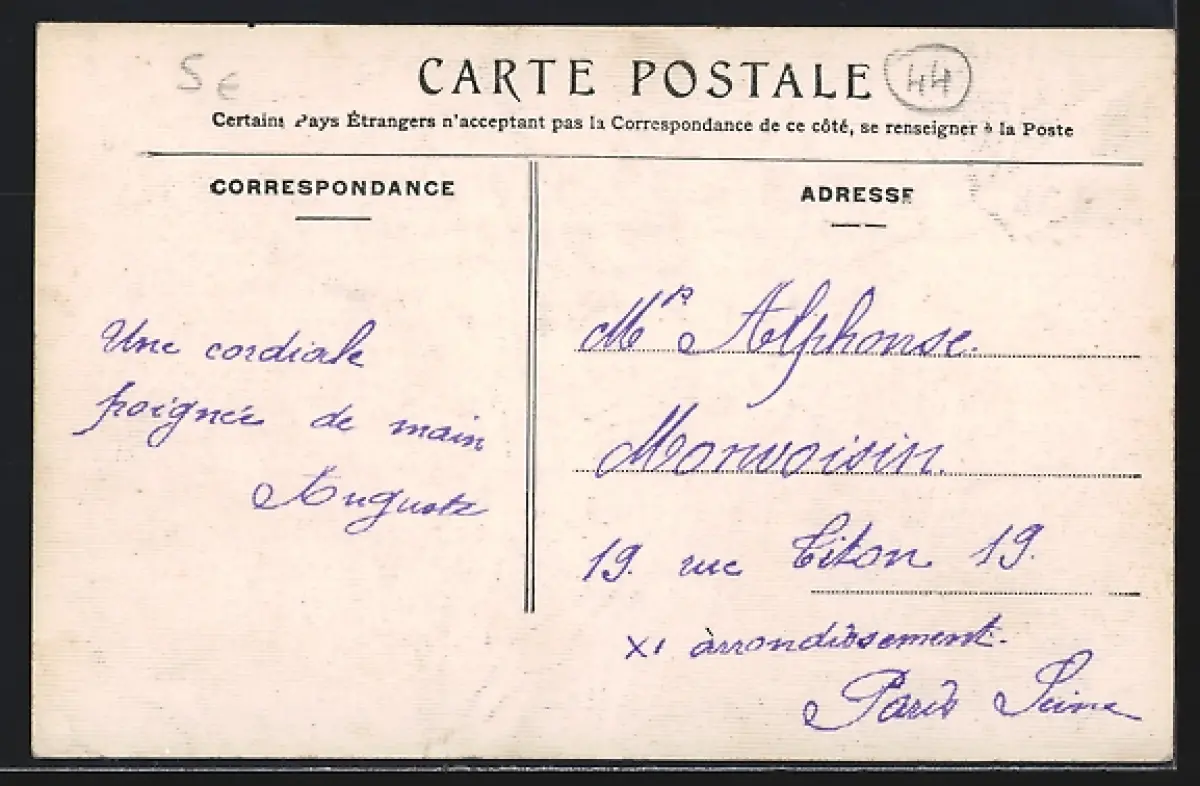 5 €
CARTE POSTALE
44
Certains Pays Étrangers n'acceptant pas la Correspondance de ce côté, se renseigner à la Poste
CORRESPONDANCE
Une cordiale
poignée de main
Auguste
ADRESSE
Mr Alphonse.
Monvoisin.
19. rue Titon 19.
XI arrondissement.
Paris Seine